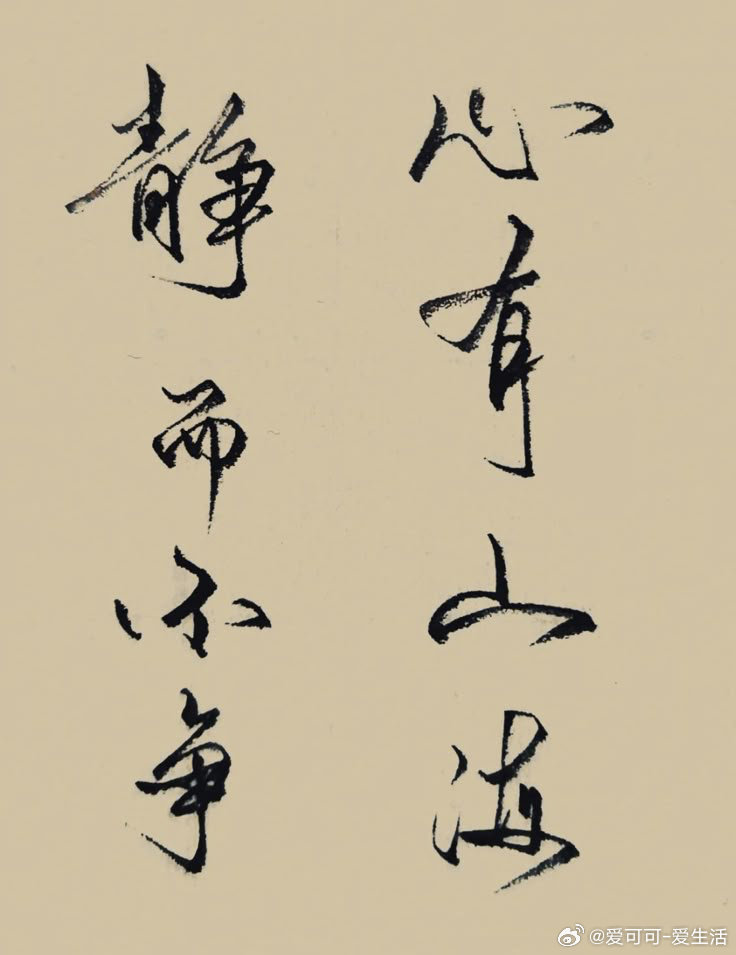 心有山海
静而不争
@爱可可-爱生活